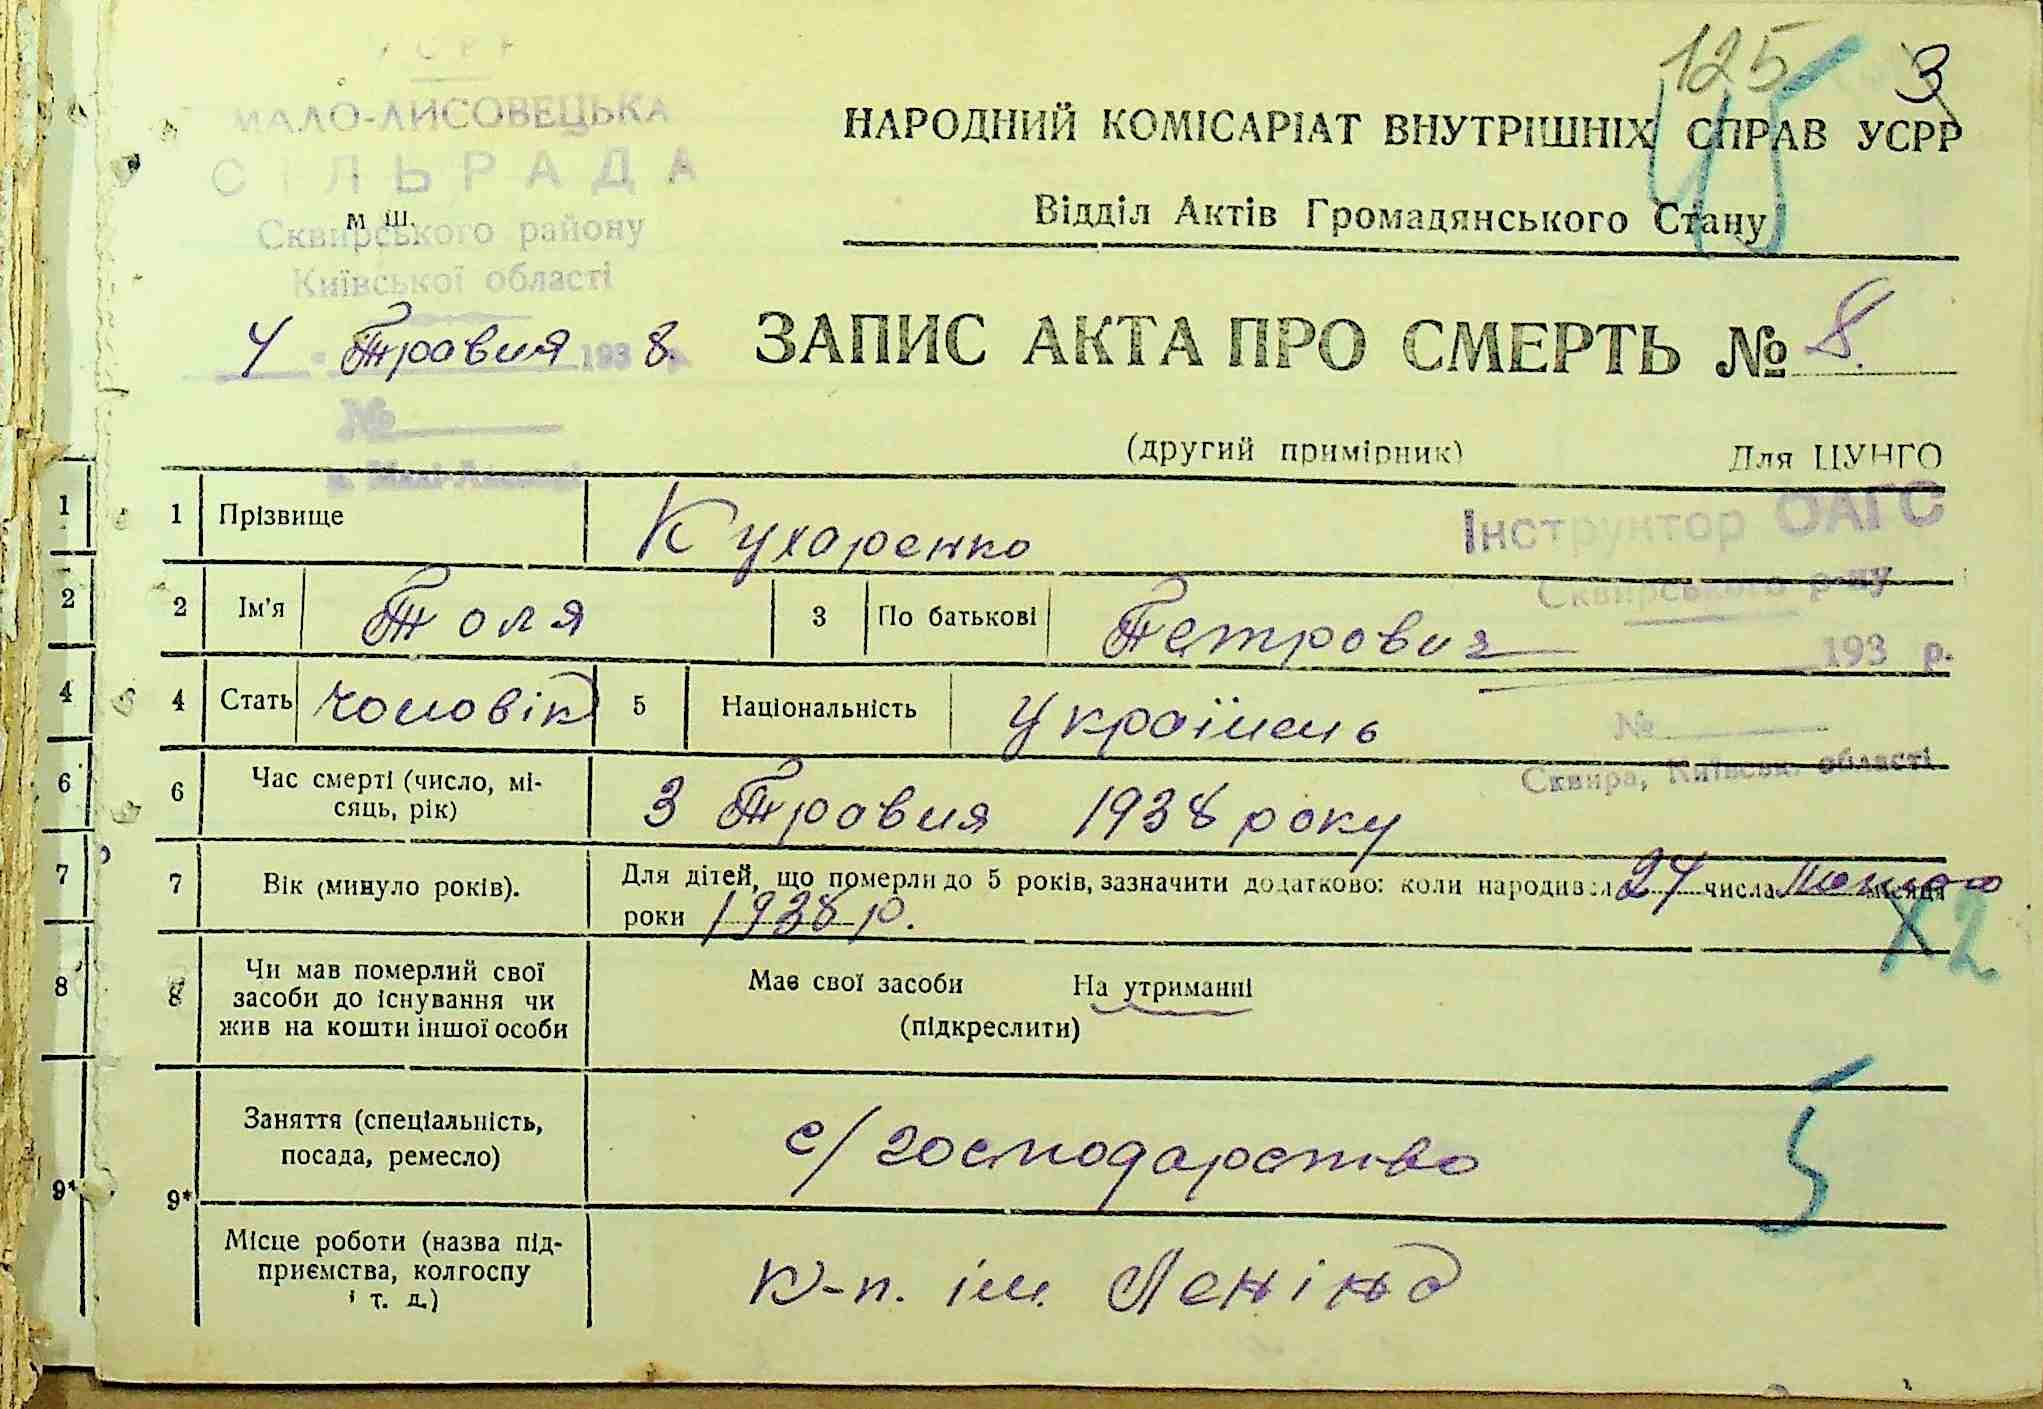 УСРР
МАЛО-ЛИСОВЕЦЬКА
СІЛЬРАДА
м ш.
Сквирського району
Київської області
4 " Травня 1938 р.
№
125
3
45
НАРОДНИЙ КОМІСАРІАТ ВНУТРІШНІХ СПРАВ УСРР
Відділ Актів Громадянського Стану
ЗАПИС АКТА ПРО СМЕРТЬ № 8.
(другий примірник) Для ЦУНГО
Інструктор ОАГС
Сквирського р-ну
193 р.
№
Сквира, Київськ. області
1 1 Прізвище Кухаренко
2 2 Ім'я Толя 3 По батькові Петрович
4 4 Стать чоловік 5 Національність Українець
6 6 Час смерті (число, мі-
сяць, рік) 3 Травня 1938 року
7 7 Вік (минуло років). Для дітей, що померли до 5 років, зазначити додатково: коли народився 24 числа місяця
роки 1938 р.
Х2
8 8 Чи мав померлий свої
засоби до існування чи
жив на кошти іншої особи
Має свої засоби На утриманні
(підкреслити)
9* 9* Заняття (спеціальність,
посада, ремесло) с/господарство
5
Місце роботи (назва під-
приємства, колгоспу
і т. д.) к-п. ім. Леніна